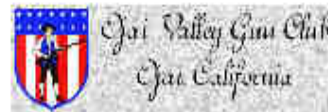 Ojai Valley Gun Club
Ojai, California